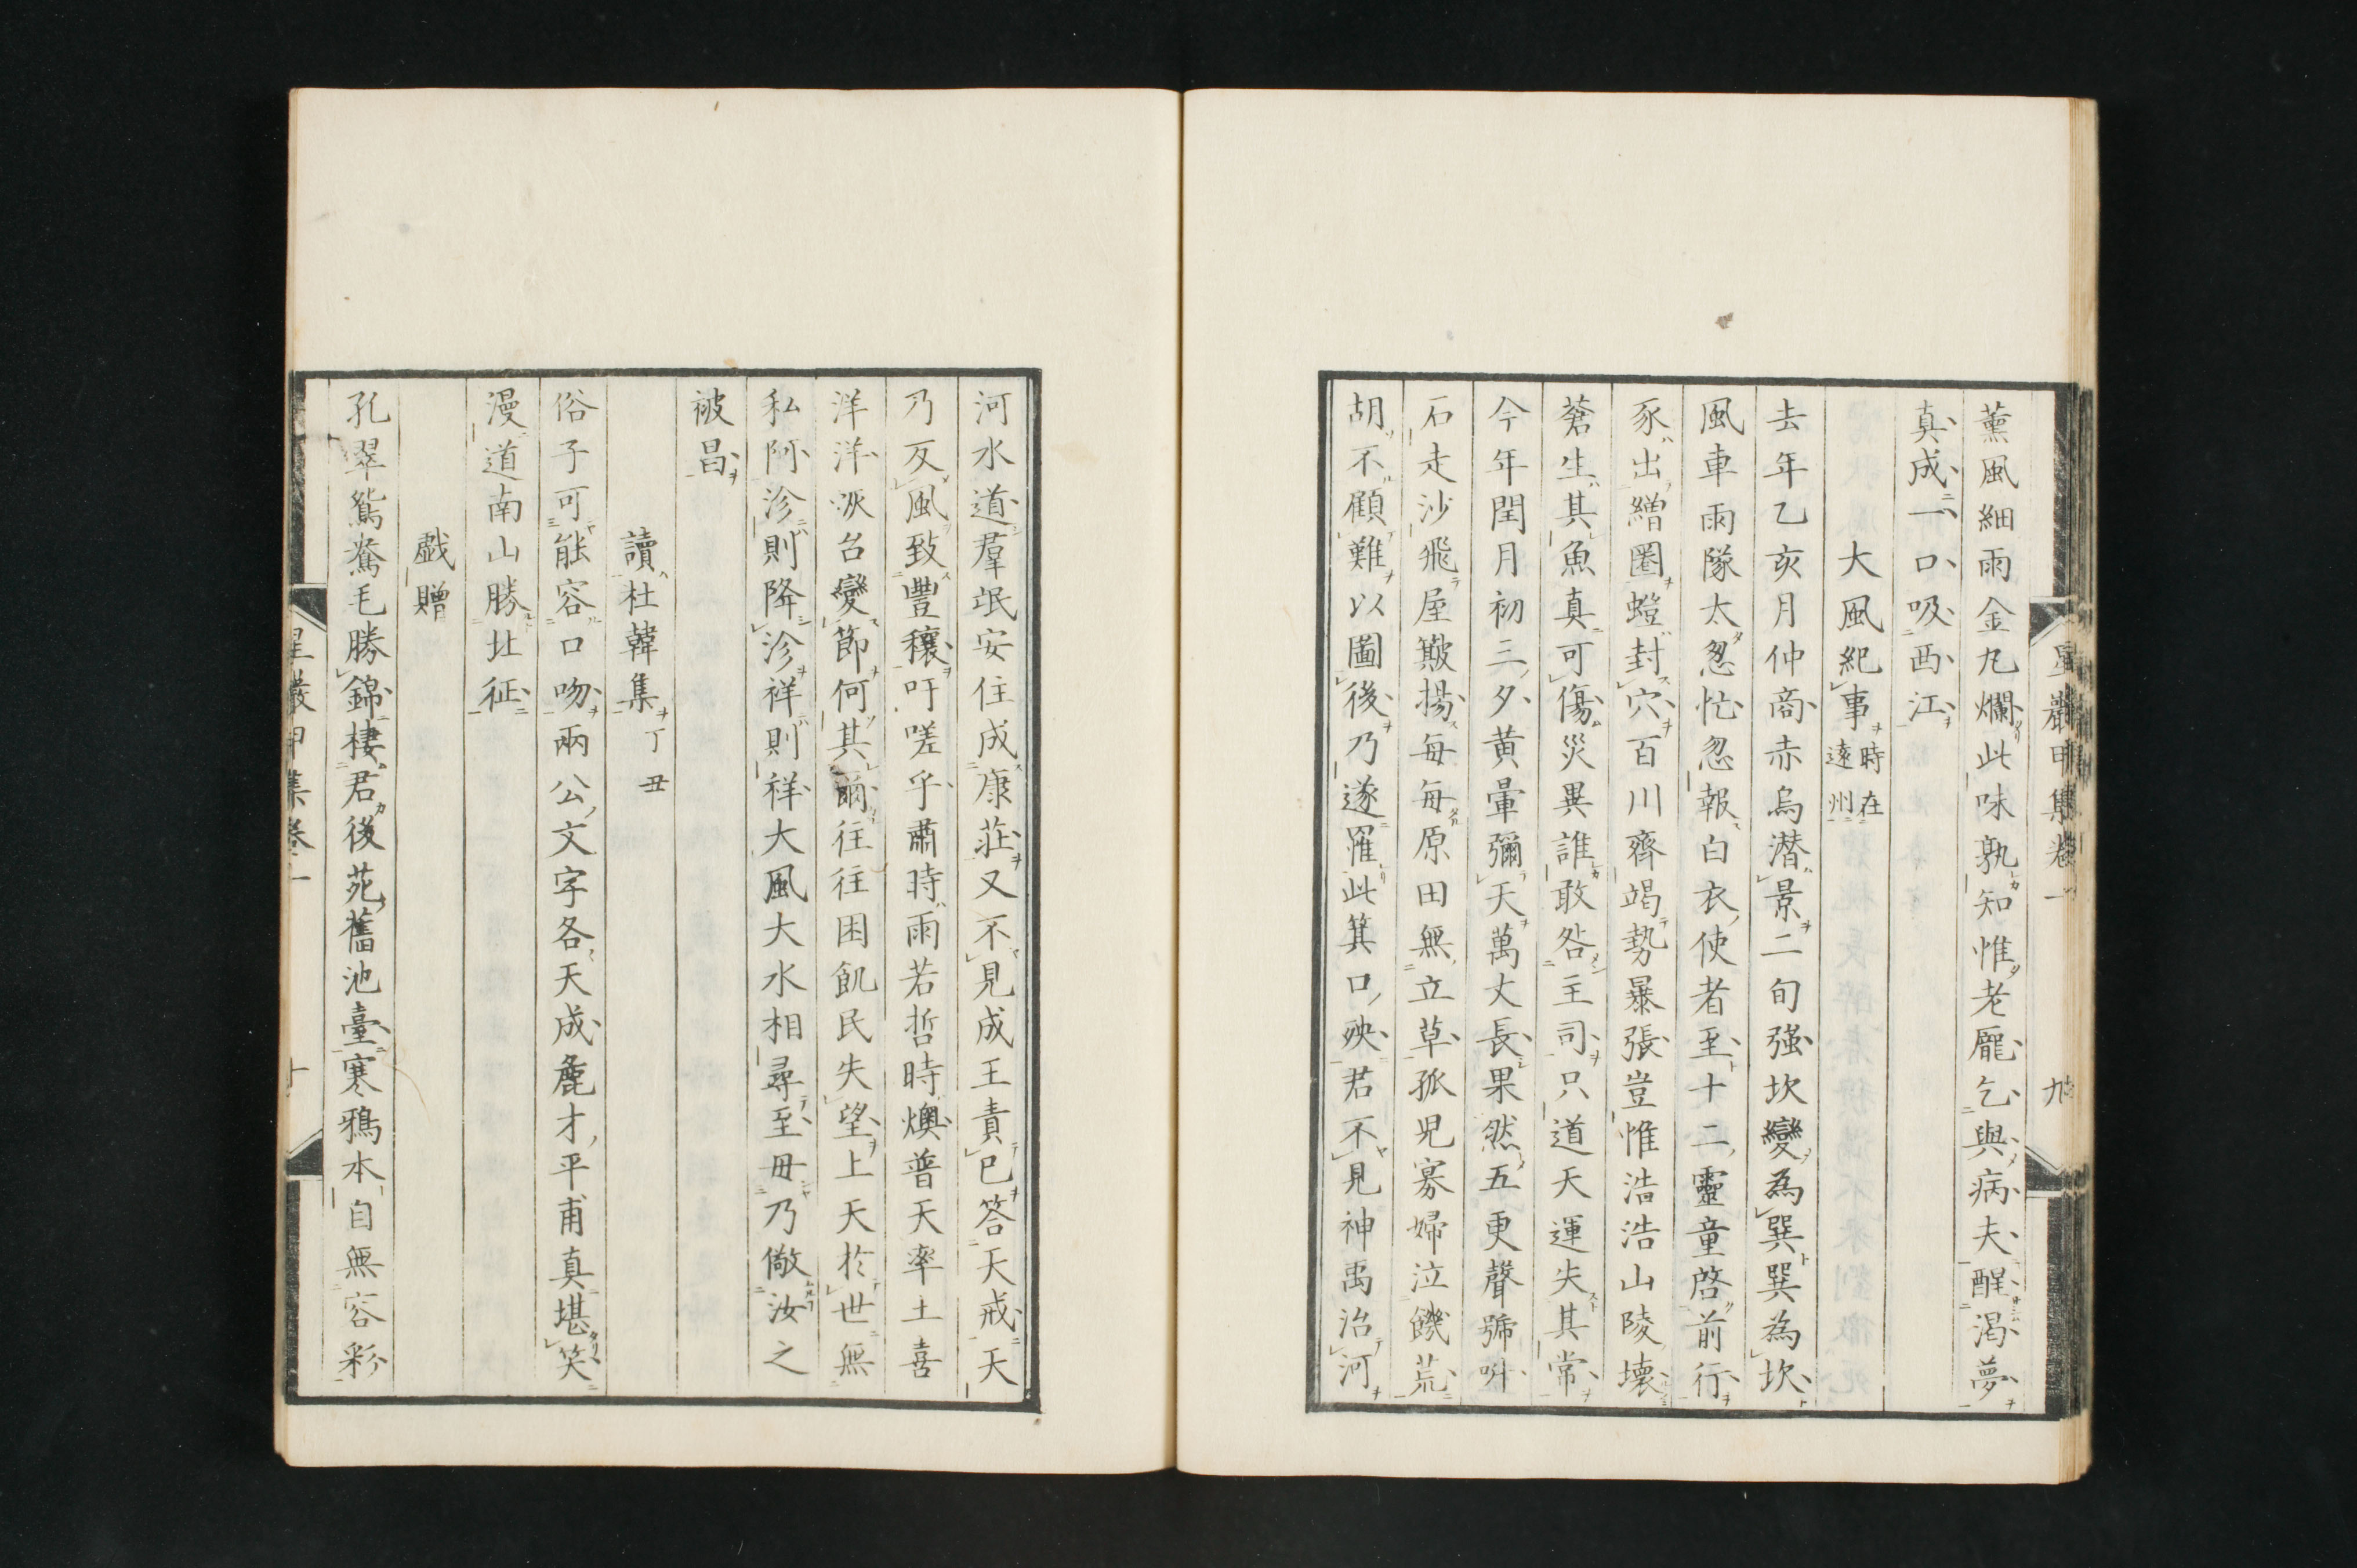 星巖甲集卷一 九
薰風細雨金丸爛此味孰知惟老龐乞與病夫醒渴夢
真成一口吸西江
大風紀事時在遠州
去年乙亥月仲商赤烏潜景二旬强坎變為巽巽為坎
風車雨隊太怱忙忽報白衣使者至十二靈童啓前行
豕出繒圏螘封穴百川齊竭勢暴張豈惟浩浩山陵壞
蒼生其魚真可傷災異誰敢咎主司只道天運失其常
今年閏月初三夕黄暈彌天萬丈長果然五更聲號呌
石走沙飛屋簸揚毎毎原田無立草孤児寡婦泣饑荒
胡不顧難以圖後乃遂罹此箕口殃君不見神禹治河
河水道羣氓安住成康莊又不見成王責已答天戒天
乃反風致豐穰吁嗟乎肅時雨若哲時燠普天率土喜
洋洋浹台變節何其爾往往困飢民失望上天於世無
私阿沴則降沴祥則祥大風大水相尋至毋乃儆汝之
被昌
讀杜韓集丁丑
俗子可能容口吻兩公文字各天成麁才平甫真堪笑
漫道南山勝北征
戯贈
孔翠鴛鴦毛勝錦棲君後苑舊池臺寒鴉本自無容彩
星巖甲集卷一 十